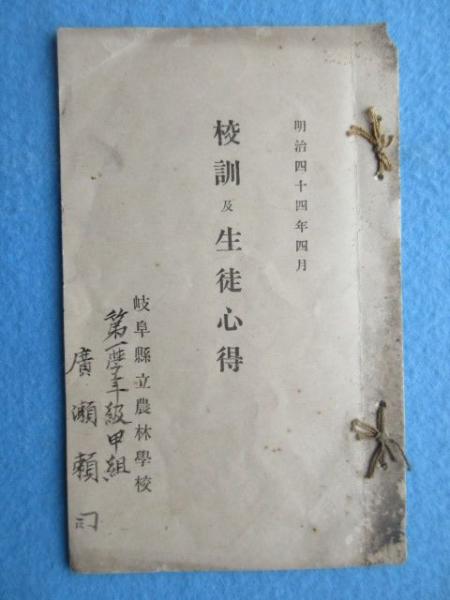 明治四十四年四月
校訓及生徒心得
岐阜縣立農林學校
第一學年級甲組
廣瀬頼司